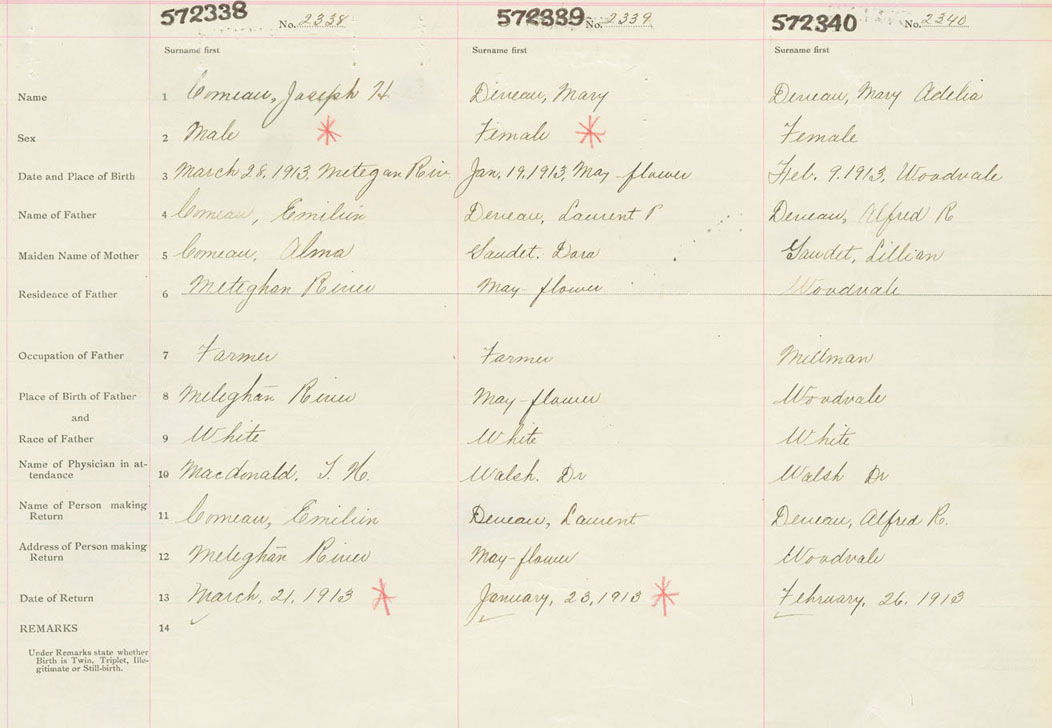 572338 No. 2338 572339 No. 2339 572340 No. 2340
Surname first Surname first Surname first
Name 1 Comeau, Joseph H Deveau, Mary Deveau, Mary Adelia
Sex 2 Male Female Female
Date and Place of Birth 3 March 28. 1913, Metegan Riv Jan. 19. 1913, May-flower Feb. 9. 1913, Woodvale
Name of Father 4 Comeau, Emilien Deveau, Laurent P Deveau, Alfred R
Maiden Name of Mother 5 Comeau, Alma Gaudet. Dora Gaudet, Lillian
Residence of Father 6 Meteghan River May-flower Woodvale
Occupation of Father 7 Farmer Farmer Millman
Place of Birth of Father 8 Meteghan River May-flower Woodvale
and
Race of Father 9 White White White
Name of Physician in at-
tendance 10 Macdonald, T. H. Walsh. Dr Walsh Dr
Name of Person making
Return 11 Comeau, Emilien Deveau, Laurent Deveau, Alfred R.
Address of Person making
Return 12 Meteghan River May-flower Woodvale
Date of Return 13 March, 21, 1913 January, 23, 1913 February, 26. 1913
REMARKS 14
Under Remarks state whether
Birth is Twin, Triplet, Ille-
gitimate or Still-birth.